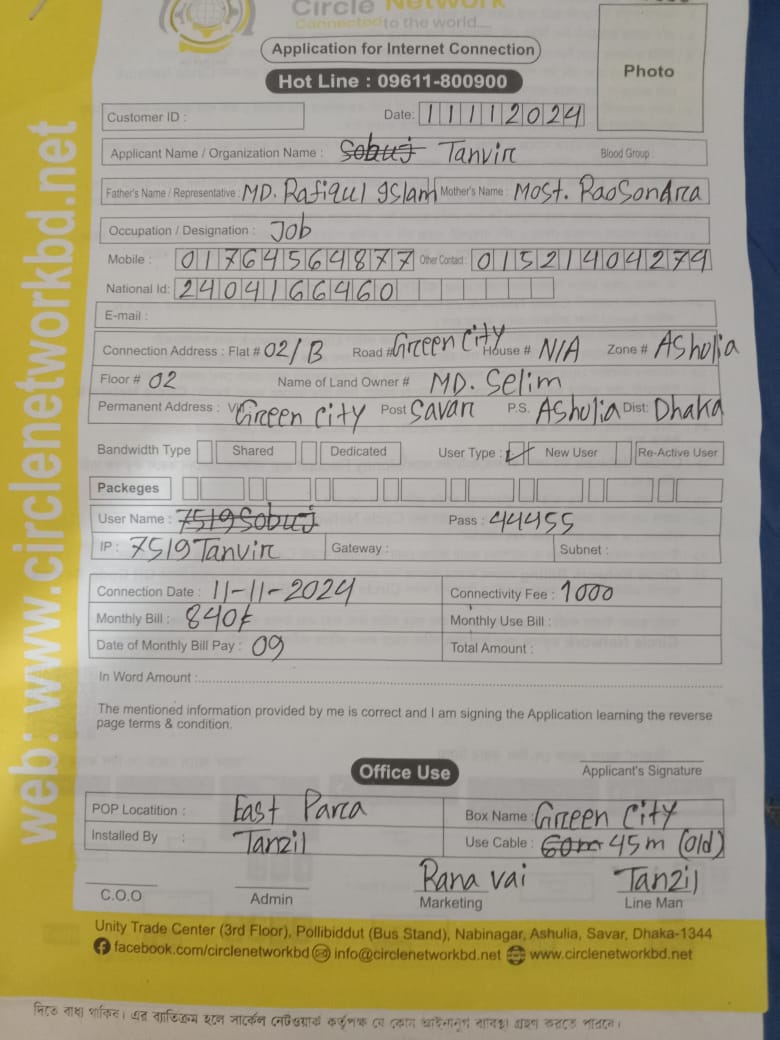 Circle Network
Connected to the world....
Application for Internet Connection
Hot Line : 09611-800900
Photo
Customer ID :
Date: 11112024
Applicant Name / Organization Name : Sobuj Tanvir Blood Group :
Father's Name / Representative : MD. Rafiqul Islam Mother's Name : Most. Raosondra
Occupation / Designation : Job
Mobile : 01764564877 Other Contact : 01521404274
National Id: 2404166460
E-mail :
Connection Address : Flat # 02/B Road # Green City House # N/A Zone # Asholia
Floor # 02 Name of Land Owner # MD. Selim
Permanent Address : Vill Green City Post Savar P.S. Asholia Dist: Dhaka
Bandwidth Type Shared Dedicated User Type : ✓ New User Re-Active User
Packeges
User Name : 7519Sobuj Pass : 44455
IP : 7519Tanvir Gateway : Subnet :
Connection Date : 11-11-2024 Connectivity Fee : 1000
Monthly Bill : 840৳ Monthly Use Bill :
Date of Monthly Bill Pay : 09 Total Amount :
In Word Amount :
The mentioned information provided by me is correct and I am signing the Application learning the reverse
page terms & condition.
Applicant's Signature
Office Use
POP Locatition : East Para Box Name : Green City
Installed By : Tanzil Use Cable : 60m 45m (old)
Rana vai Tanzil
C.O.O Admin Marketing Line Man
Unity Trade Center (3rd Floor), Pollibiddut (Bus Stand), Nabinagar, Ashulia, Savar, Dhaka-1344
facebook.com/circlenetworkbd info@circlenetworkbd.net www.circlenetworkbd.net
দিতে বাধ্য থাকিব। এর ব্যতিক্রম হলে সার্কেল নেটওয়ার্ক কর্তৃপক্ষ যে কোন আইনানুগ ব্যবস্থা গ্রহণ করতে পারবে।
web: www.circlenetworkbd.net